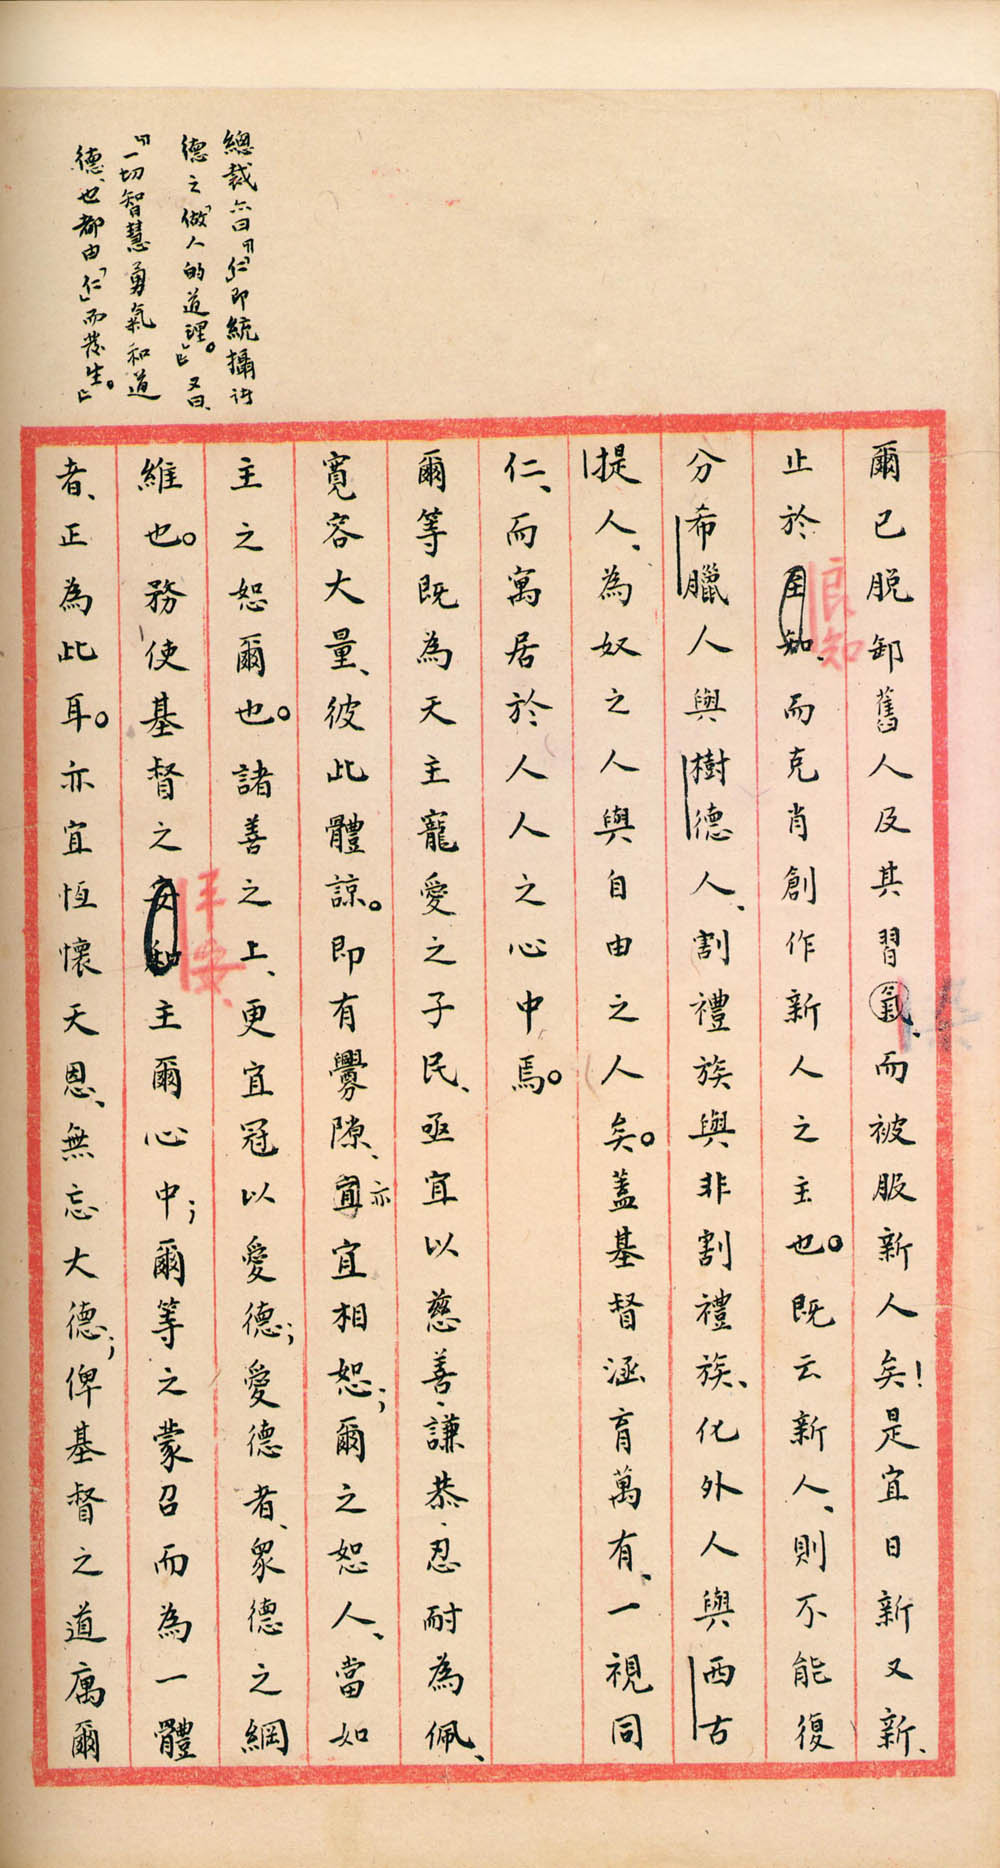 總裁亦曰『「仁」即統攝諸
德之「做人的道理。」』又曰、
『一切智慧勇氣和道
德、也都由「仁」而發生。』
爾已脫卸舊人及其習氣、而被服新人矣!是宜日新又新、
止於至知、而克肖創作新人之主也。既云新人、則不能復
良知
分希臘人與樹德人、割禮族與非割禮族、化外人與西古
提人、為奴之人與自由之人矣。蓋基督涵育萬有、一視同
仁、而寓居於人人之心中焉。
爾等既為天主寵愛之子民、亟宜以慈善、謙恭、忍耐為佩、
寬容大量、彼此體諒。即有釁隙、亦宜相恕;爾之恕人、當如
主之恕爾也。諸善之上、更宜冠以愛德;愛德者、眾德之綱
維也。務使基督之安和主爾心中;爾等之蒙召而為一體
平安
者、正為此耳。亦宜恆懷天恩、無忘大德;俾基督之道寓爾